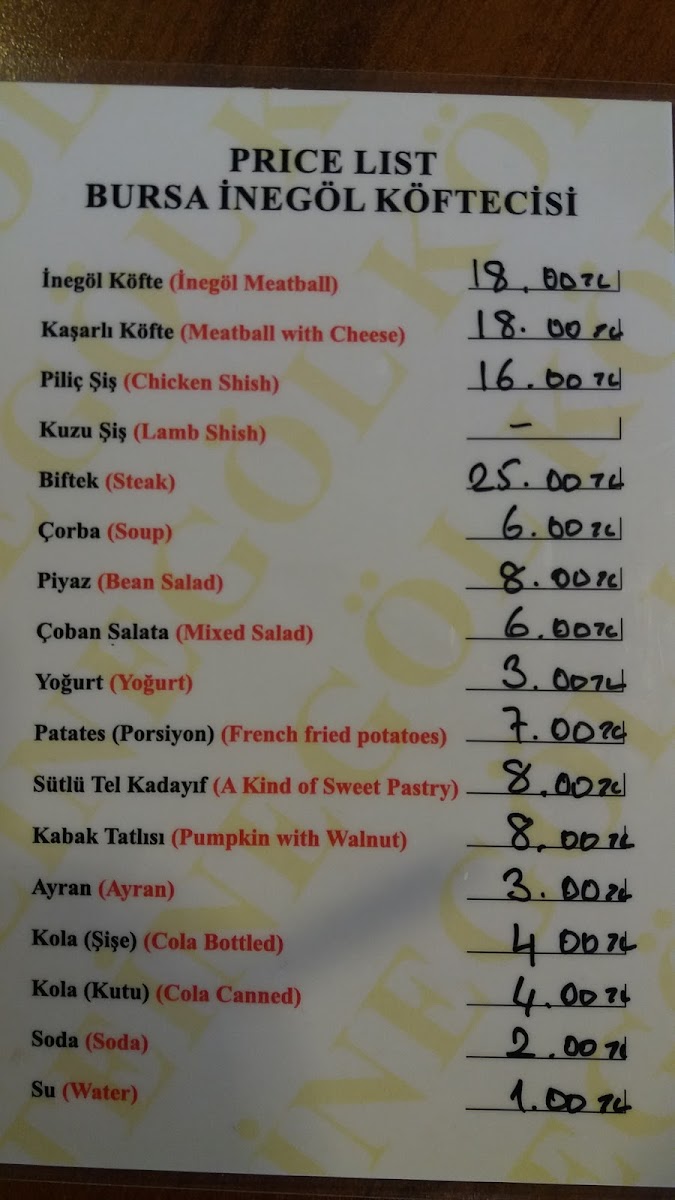 PRICE LIST
BURSA İNEGÖL KÖFTECİSİ
İnegöl Köfte (İnegöl Meatball) 18.00 TL
Kaşarlı Köfte (Meatball with Cheese) 18.00 TL
Piliç Şiş (Chicken Shish) 16.00 TL
Kuzu Şiş (Lamb Shish) -
Biftek (Steak) 25.00 TL
Çorba (Soup) 6.00 TL
Piyaz (Bean Salad) 8.00 TL
Çoban Salata (Mixed Salad) 6.00 TL
Yoğurt (Yoğurt) 3.00 TL
Patates (Porsiyon) (French fried potatoes) 7.00 TL
Sütlü Tel Kadayıf (A Kind of Sweet Pastry) 8.00 TL
Kabak Tatlısı (Pumpkin with Walnut) 8.00 TL
Ayran (Ayran) 3.00 TL
Kola (Şişe) (Cola Bottled) 4 00 TL
Kola (Kutu) (Cola Canned) 4.00 TL
Soda (Soda) 2.00 TL
Su (Water) 1.00 TL